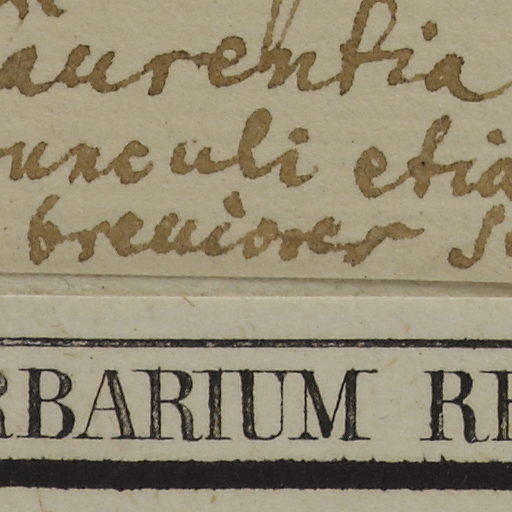 aurentia
unculi etia
breviores s
RBARIUM RE